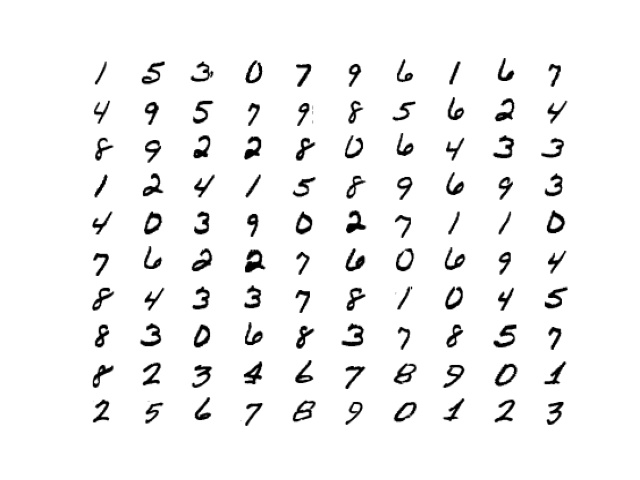 1 5 3 0 7 9 6 1 6 7
4 9 5 7 9 8 5 6 2 4
8 9 2 2 8 0 6 4 3 3
1 2 4 1 5 8 9 6 9 3
4 0 3 9 0 2 7 1 1 0
7 6 2 2 7 6 0 6 9 4
8 4 3 3 7 8 1 0 4 5
8 3 0 6 8 3 7 8 5 7
8 2 3 4 6 7 8 9 0 1
2 5 6 7 8 9 0 1 2 3